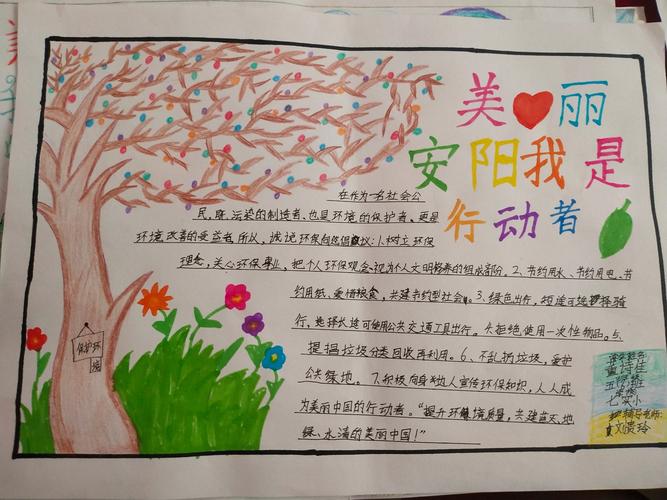 美丽
安阳我是
行动者
在作为一名社会公
民,既污染的制造者、也是环境的保护者、更是
环境改善的受益者,所以,诚说环保向您倡议:1.树立环保
理念,关心环保事业,把个人环保观念视为个人文明修养的组成部分。2、节约用水、节约用电、节
约用纸、爱惜粮食,共建节约型社会。3、绿色出行,短途可选择骑
行,选择长途可使用公共交通工具出行。4.拒绝使用一次性物品。5、
提揭垃圾分类回收再利用。6、不乱扔垃圾,爱护
公共绿地。7.积极向身边人宣传环保知识,人人成
为美丽中国的行动者。"提升环境质量,共建蓝天、地
绿、水清的美丽中国!"
保护环
境
董诗佳
班
辅导老师:
刘贵玲